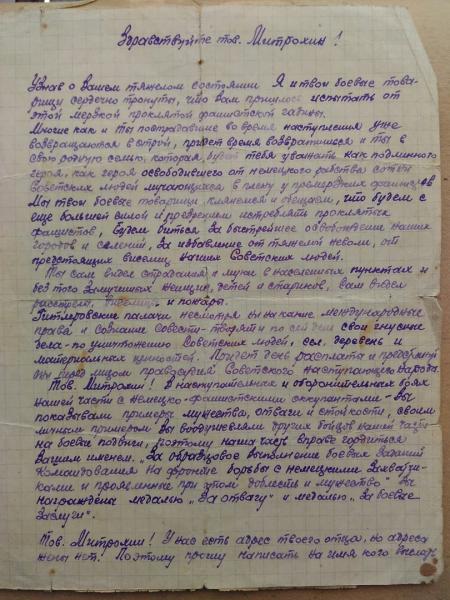 Здравствуйте тов. Митрохин!
Узнав о Вашем тяжелом состоянии Я и твои боевые това-
рищи сердечно тронуты, что вам пришлось испытать от
этой мерзкой проклятой фашистской гадины.
Многие как и ты пострадавшие во время наступления уже
возвращаются в строй, придет время возвратишся и ты в
свою родную семью, которая будет тебя уважать как подлинного
героя, как героя освободившего от немецкого рабства сотни
советских людей мучающихся в плену у фашистов
Мы твои боевые товарищи клянемся и обещаем, что будем с
еще большей силой и презрением истреблять проклятых
фашистов, будем биться за быстрейшее освобождение наших
городов и селений, за избавление от тяжелой неволи, от
предстоящих виселиц наших Советских людей.
Ты сам видел страдания и муки в населенных пунктах и
без того замученных женщин, детей и стариков, сам видел
расстрелы, виселицы и пожары.
Гитлеровские палачи несмотря ни на какие международные
права и сознание совести - творят и по сей день свои гнусные
дела - по уничтожению Советских людей, сел, деревень и
материальных ценностей. Придет день расплаты и
они перед лицом правосудия Советского наступающего народа.
Тов. Митрохин! В наступательных и оборонительных боях
нашей части с немецко-фашистскими оккупантами - вы
показывали примеры мужества, отваги и стойкости, своим
личным примером вы воодушевляли других бойцов нашей части
на боевые подвиги, поэтому наша часть вправе гордиться
Вашим именем. "За образцовое выполнение боевых заданий
Командования на фронте борьбы с немецкими захватчи-
ками и проявленные при этом доблесть и мужество" Вы
награждены медалью "За отвагу" и медалью "За боевые
Заслуги".
Тов. Митрохин! У нас есть адрес твоего отца, но адреса
жены нет! Поэтому прошу написать на имя кого выслать